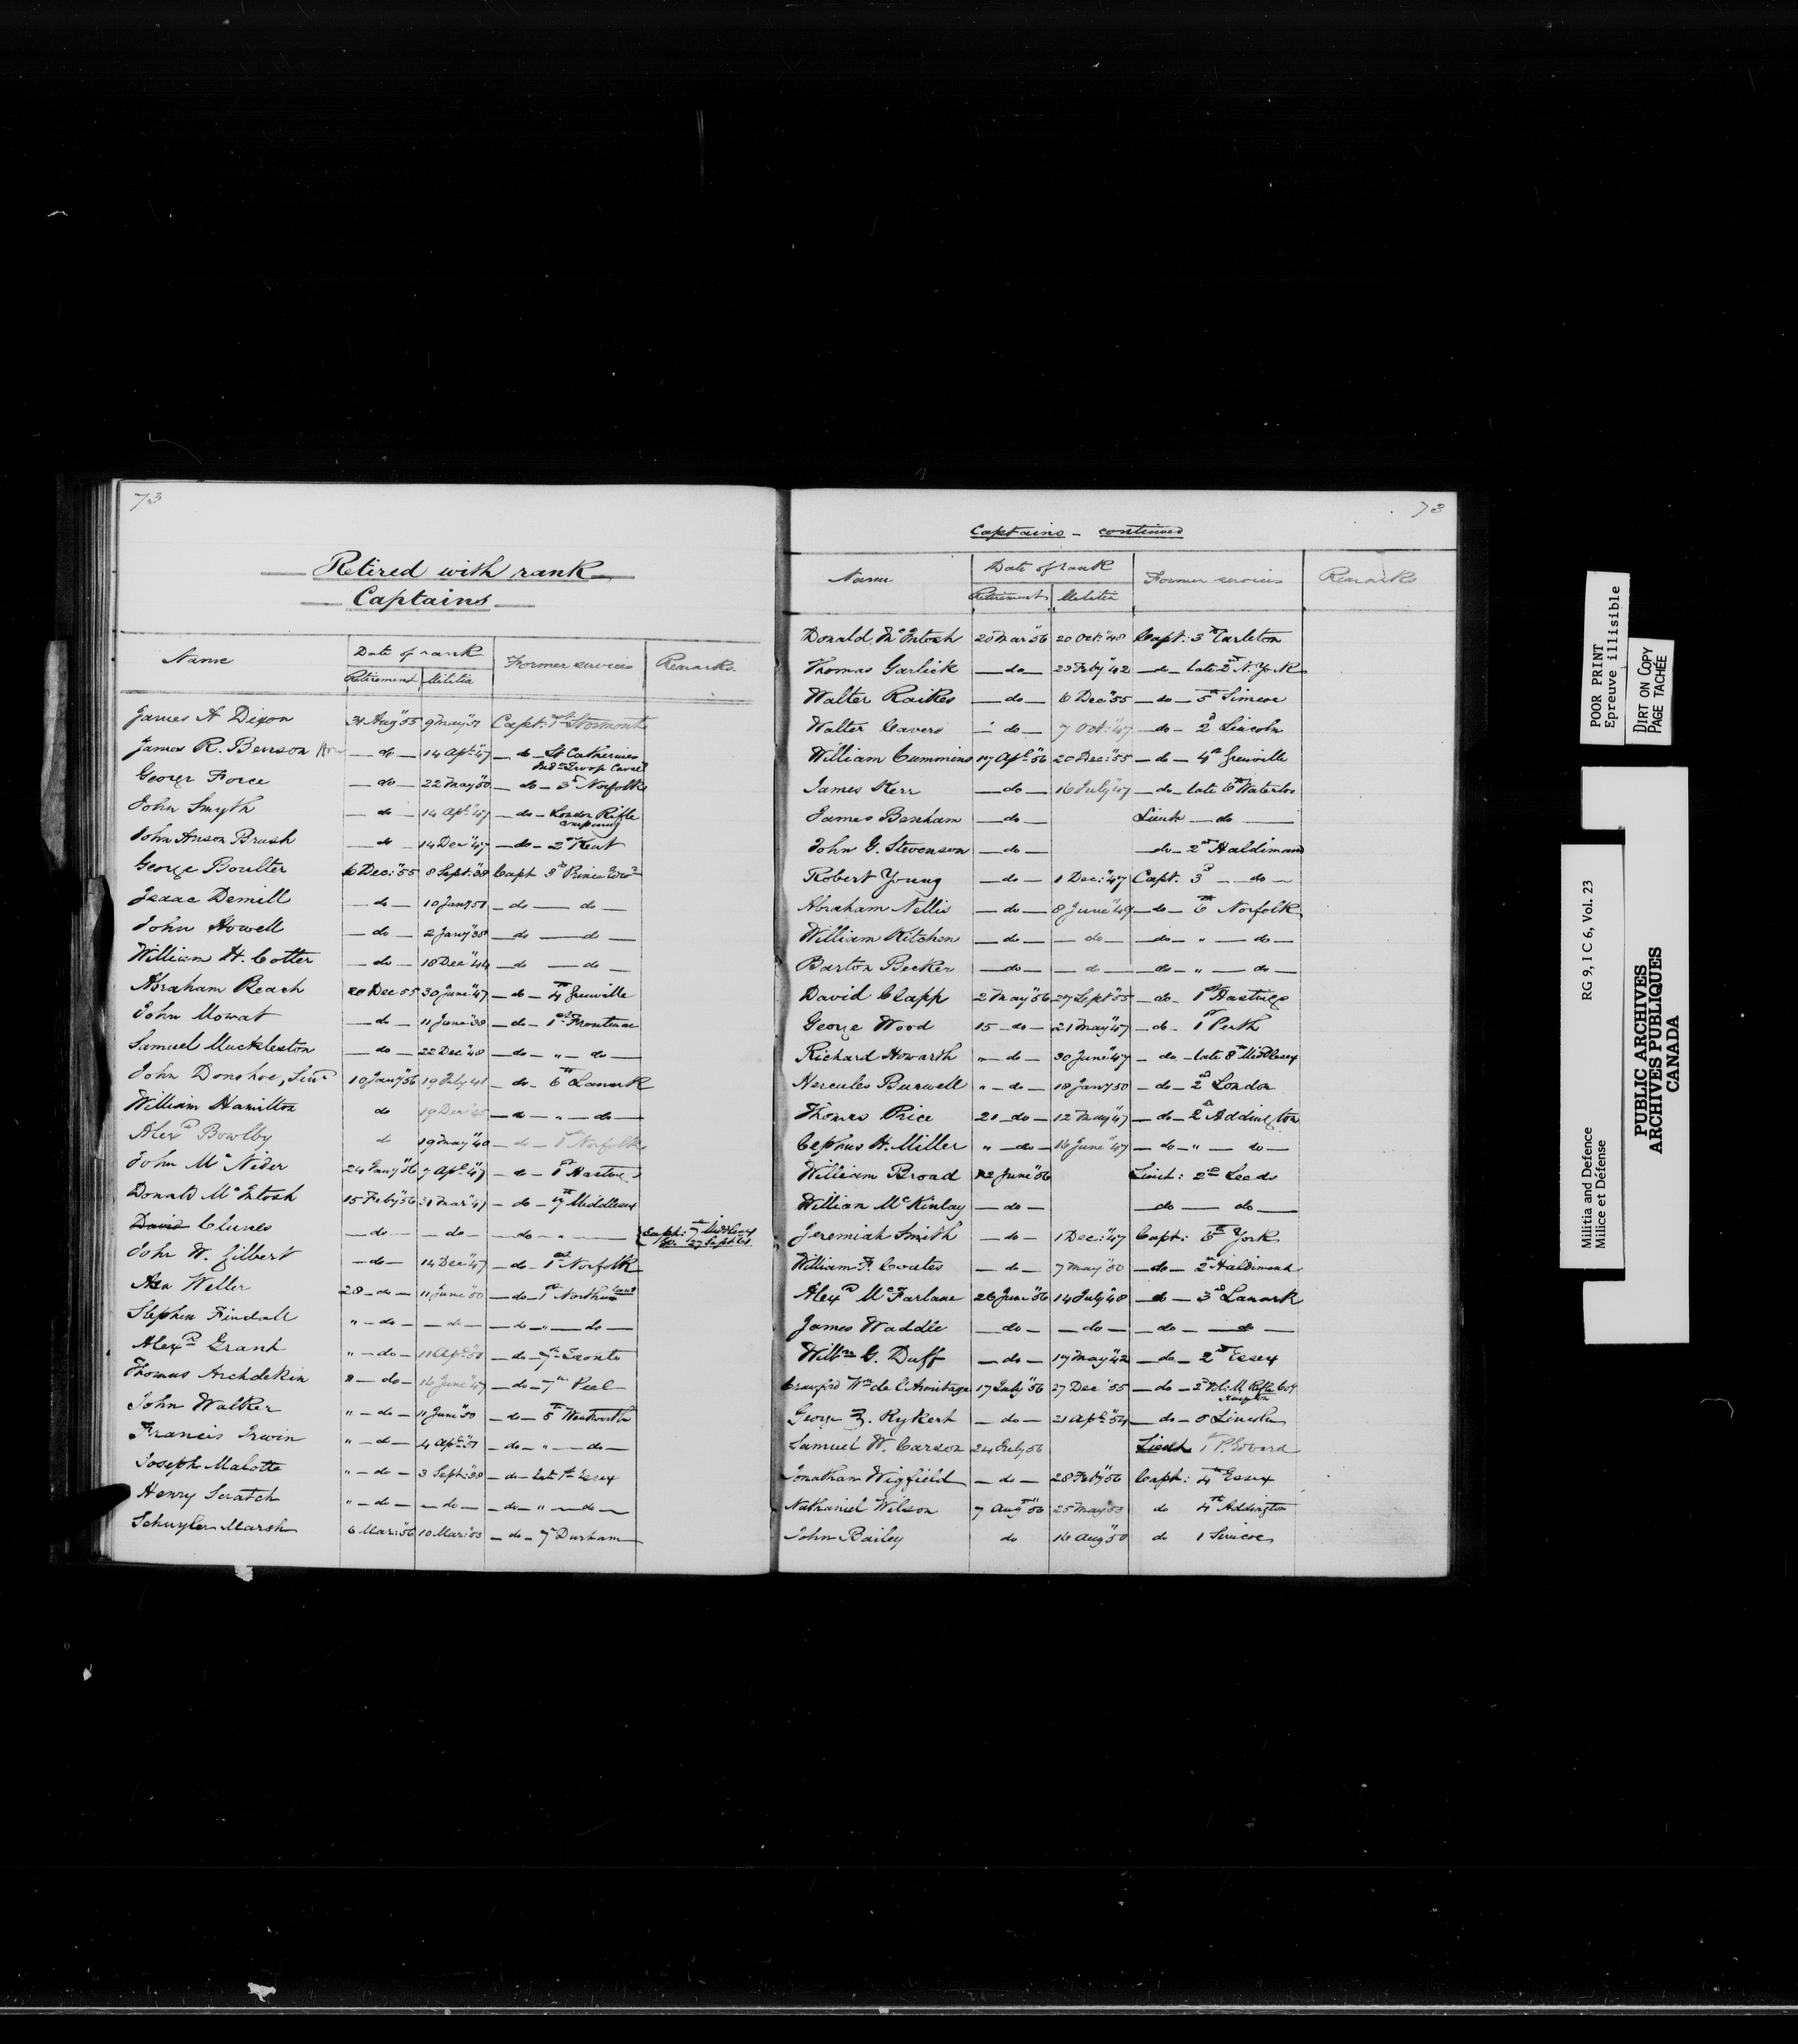 73
Retired with rank
Captains
Name Date of rank Former services Remarks
Retirement Militia
James A Dixon 31 Augt 55 9 May 51 Capt: Stormont
James R. Benson — do — 14 Apl 47 — do — St Catherines
Troop Cavaly
George Force — do — 22 May 50 — do — 3d Norfolk
John Smyth — do — 14 Apl 47 — do — London Rifle
Company
John Anson Brush — do — 14 Dec 47 — do — 2d Kent
George Boulter 6 Dec: 55 8 Sept: 38 Capt 3d Prince Edwd
Isaac Demill — do — 10 Jany 51 — do — do —
John Howell — do — 2 Jany 38 — do — do —
William H. Cotter — do — 18 Dec 44 — do — do —
Abraham Reach 20 Dec 55 30 June 47 — do — 4th Grenville
John Mowat — do — 11 June 38 — do — 1st Frontenac
Samuel Muckleston — do — 22 Dec 48 — do — " — do —
John Donohoe, Senr 10 Jany 56 19 July 41 — do — 6th Lanark
William Hamilton do 19 Dec 45 — do — " — do —
Alexr Bowlby do 19 May 40 — do — 1st Norfolk
John McNider 24 Jany 56 7 Apl 47 — do — 1st
Donald McIntosh 15 Feby 56 31 Mar 47 — do — 7th Middlesex
David Clunes — do — — do — — do — " — Capt: 7th Middlesex
27 Sept
John W. Gilbert — do — 14 Dec 47 — do — 1st Norfolk
Weller 28 — do — 11 June 50 — do — 1st
Stephen Tindall " — do — — do — — do — " — do —
Alexr Grant " — do — 11 Apl 51 — do — 7th Toronto
Thomas Archdekin 8 — do — 16 June 47 — do — 7th Peel
John Walker " — do — 11 June 50 — do — 5th Wentworth
Francis Irwin " — do — 4 Apl 51 — do — " — do —
Joseph Malotte " — do — 3 Sept: 38 — do — late 1st Essex
Henry Scratch " — do — — do — — do — " — do —
Schuyler Marsh 6 Mar: 56 10 Mar: 53 — do — 7th Durham
73
Captains — continued
Name Date of rank Former services Remarks
Retirement Militia
Donald McIntosh 20 Mar 56 20 Oct: 48 Capt: 3d Carleton
Thomas Garlick — do — 23 Feby 42 — do — late 2d N. York
Walter Raikes — do — 6 Dec 55 — do — 5th Simcoe
Walter Cavers — do — 7 Oct: 47 — do — 2d Lincoln
William Cummins 17 Apl 56 20 Dec: 55 — do — 4th Grenville
James Kerr — do — 16 July 47 — do — late 6th Waterloo
James Benham — do — Lieut — do —
John G. Stevenson — do — — do — 2nd Haldimand
Robert Young — do — 1 Dec: 47 Capt: 3d — do —
Abraham Nellis — do — 8 June 49 — do — 6th Norfolk
William Kitchen — do — — do — — do — " — do —
Barton Becker — do — — do — — do — " — do —
David Clapp 2 May 56 27 Sept 55 — do — 1st Hastings
George Wood 15 — do — 21 May 47 — do — 1st Perth
Richard Howarth " — do — 30 June 47 — do — late 8th Middlesex
Hercules Burwell " — do — 18 Jany 50 — do — 2d London
Thomas Price 21 — do — 12 May 47 — do — 2d Addington
Cephus H. Miller " — do — 16 June 47 — do — " — do —
William Broad 12 June 56 Lieut: 2nd Leeds
William McKinlay — do — — do — do —
Jeremiah Smith — do — 1 Dec: 47 Capt: 6th York
William F. Coates — do — 7 May 50 — do — 2nd Haldimand
Alexr McFarlane 26 June 56 14 July 48 — do — 3d Lanark
James Waddie — do — — do — — do — — do —
Willm G. Duff — do — 17 May 42 — do — 2nd Essex
Crawford Wm de l'Armitage 17 July 56 27 Dec 55 — do — 2d Vol: M. Rifle Coy
Kingston
George Z. Rykert — do — 21 Apl 54 — do — 5 Lincoln
Samuel W. Carson 24 July 56 Lieut 1st P. Edward
Jonathan Wigfield — do — 28 Feby 56 Capt: 4th Essex
Nathaniel Wilson 7 Aug 56 25 May 53 do 4th Addington
John Bailey do 14 Aug 50 do 1 Simcoe
POOR PRINT
Epreuve illisible
DIRT ON COPY
PAGE TACHÉE
Militia and Defence RG 9, I C 6, Vol. 23
Milice et Défense
PUBLIC ARCHIVES
ARCHIVES PUBLIQUES
CANADA